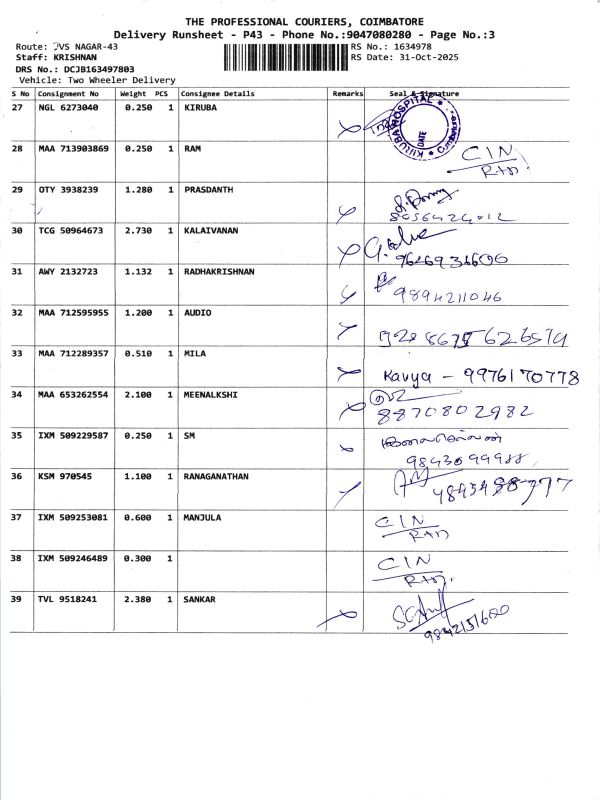 THE PROFESSIONAL COURIERS, COIMBATORE
Delivery Runsheet - P43 - Phone No.:9047080280 - Page No.:3
Route: TVS NAGAR-43 RS No.: 1634978
Staff: KRISHNAN RS Date: 31-Oct-2025
DRS No.: DCJB163497803
Vehicle: Two Wheeler Delivery
S No Consignment No Weight PCS Consignee Details Remarks Seal & Signature
27 NGL 6273040 0.250 1 KIRUBA KIRUBA HOSPITAL DATE Coimbatore
28 MAA 713903869 0.250 1 RAM CIN
29 OTY 3938239 1.280 1 PRASDANTH
30 TCG 50964673 2.730 1 KALAIVANAN
9626936606
31 AWY 2132723 1.132 1 RADHAKRISHNAN
9894211046
32 MAA 712595955 1.200 1 AUDIO
33 MAA 712289357 0.510 1 MILA
Kavya - 9976170778
34 MAA 653262554 2.100 1 MEENALKSHI
8870802982
35 IXM 509229587 0.250 1 SM
9843099988
36 KSM 970545 1.100 1 RANAGANATHAN
37 IXM 509253081 0.600 1 MANJULA CIN
38 IXM 509246489 0.300 1 CIN
39 TVL 9518241 2.380 1 SANKAR
9842151600